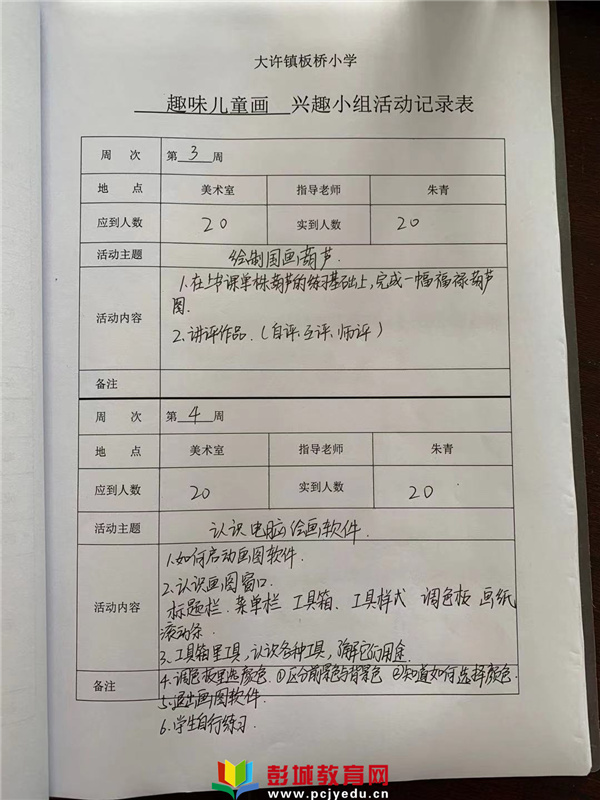 大许镇板桥小学
趣味儿童画 兴趣小组活动记录表
周 次 第 3 周
地 点 美术室 指导老师 朱青
应到人数 20 实到人数 20
活动主题 绘制国画葫芦.
活动内容 1.在上节课单株葫芦的练习基础上,完成一幅福禄葫芦
图.
2.讲评作品.(自评.互评.师评)
备注
周 次 第 4 周
地 点 美术室 指导老师 朱青
应到人数 20 实到人数 20
活动主题 认识电脑绘画软件.
活动内容 1.如何启动画图软件.
2.认识画图窗口.
标题栏.菜单栏 工具箱、工具样式 调色板 画纸
滚动条.
3.工具箱里工具,认识各种工具,了解它们用途.
备注 4.调色板里选颜色.①区分前景色与背景色 ②知道如何选择颜色.
5.退出画图软件.
6.学生自行练习.
彭城教育网
www.pcjyedu.cn